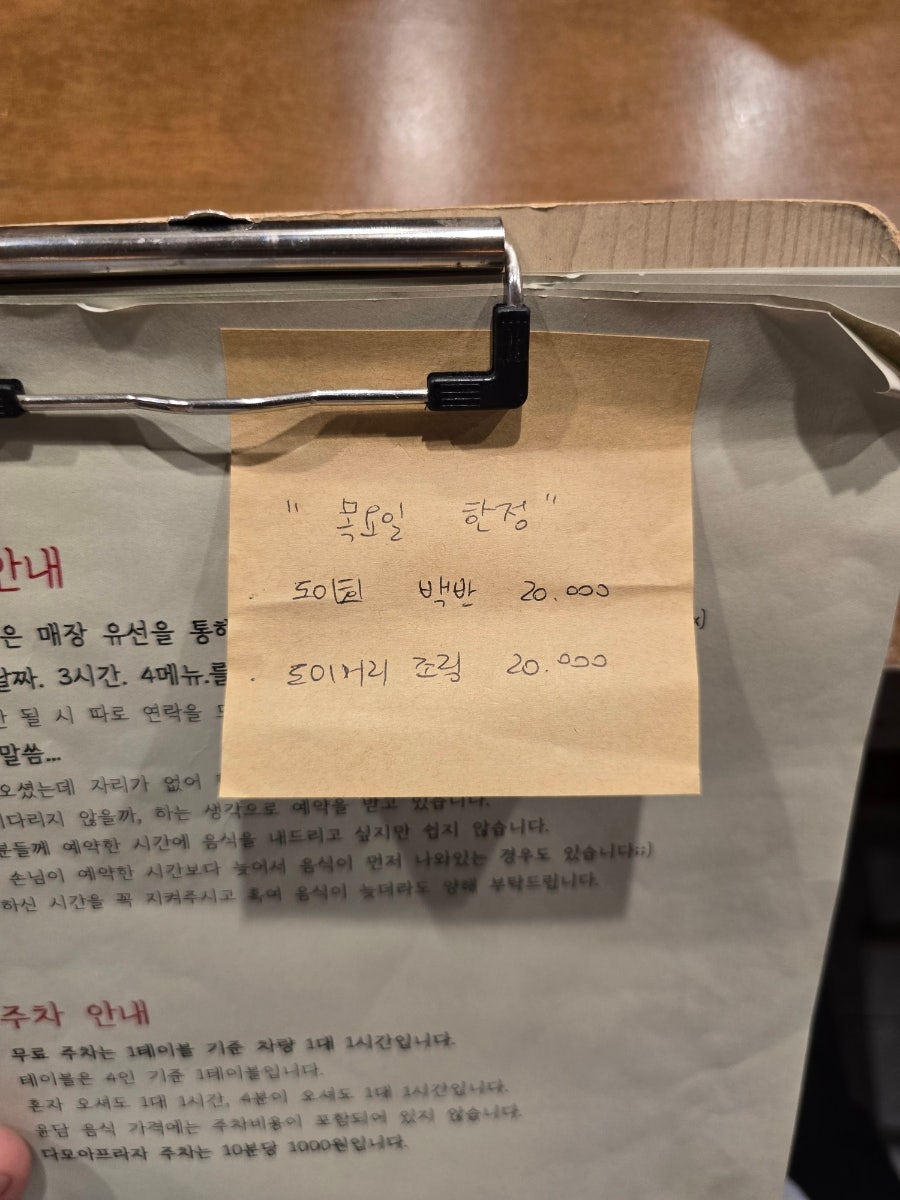 " 목요일 한정 "
· 도미찜 백반 20.000
· 도미머리 조림 20.000
안내
은 매장 유선을 통하
날짜. 3시간. 4메뉴.를
될 시 따로 연락을
말씀...
오셨는데 자리가 없어
기다리지 않을까, 하는 생각으로 예약을 받고 있습니다.
분들께 예약한 시간에 음식을 내드리고 싶지만 쉽지 않습니다.
손님이 예약한 시간보다 늦어서 음식이 먼저 나와있는 경우도 있습니다;;)
하신 시간을 꼭 지켜주시고 혹여 음식이 늦더라도 양해 부탁드립니다.
주차 안내
무료 주차는 1테이블 기준 차량 1대 1시간입니다.
테이블은 4인 기준 1테이블입니다.
혼자 오셔도 1대 1시간, 4분이 오셔도 1대 1시간입니다.
윤담 음식 가격에는 주차비용이 포함되어 있지 않습니다.
다모아프라자 주차는 10분당 1000원입니다.